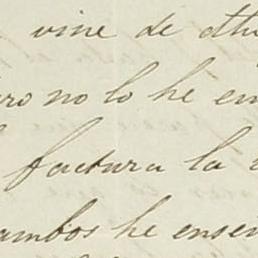 vine de
no lo he en
factura la
ambos he ensen